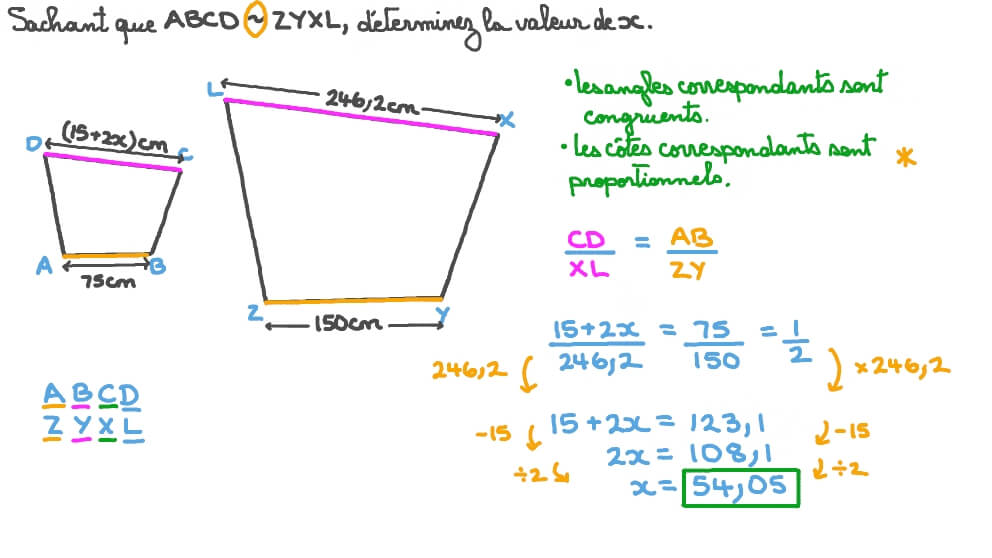 Sachant que ABCD ~ ZYXL, déterminez la valeur de x.
L
246,2cm
X
D
(15+2x)cm
C
A
B
75cm
Z
Y
150cm
A B C D
Z Y X L
• les angles correspondants sont
congruents.
• les côtés correspondants sont *
proportionnels.
CD/XL = AB/ZY
246,2
15+2x/246,2 = 75/150 = 1/2
×246,2
-15 15+2x = 123,1 -15
÷2 2x = 108,1 ÷2
x = 54,05